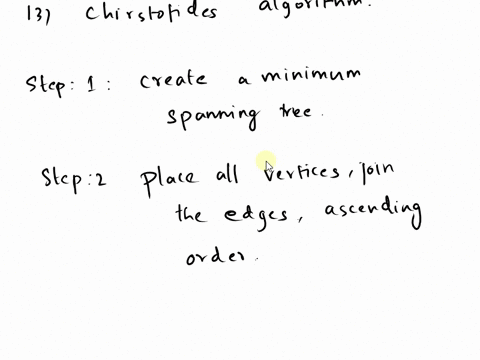 13) Chirstofides algorithm.
Step: 1: create a minimum
spanning tree.
Step:2 place all vertices, join
the edges, ascending
order.